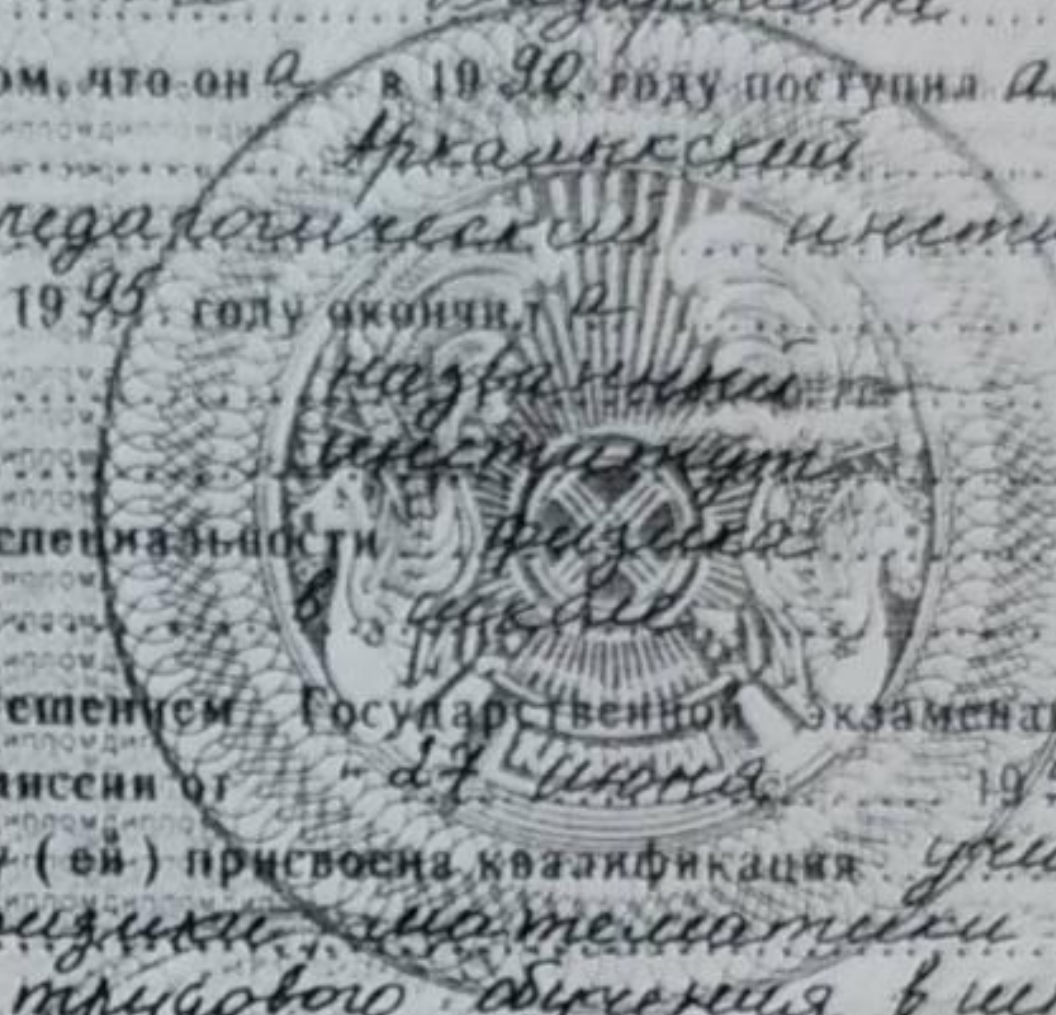 ом, что он а в 19 90 году поступил а
Аркалыкский
педагогический инсти
19 95 году окончил а
названный
институт
специальности физика
в школе
ешением Государственной экзамена
миссии от "27 июня 19
(ей) присвоена квалификация учи
физики математики
трудового обучения в шк